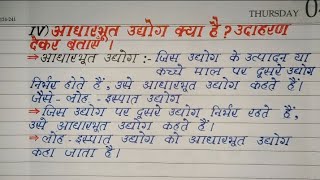 THURSDAY 0
IV) आधारभूत उद्योग क्या है ? उदाहरण
देकर बताएँ ।
⇒ आधारभूत उद्योग :- जिस उद्योग के उत्पादन या
कच्चे माल पर दूसरे उद्योग
निर्भर होते हैं , उसे आधारभूत उद्योग कहते हैं।
जैसे - लोह - इस्पात उद्योग
⇒ जिस उद्योग पर दूसरे उद्योग निर्भर रहते हैं ,
उसे आधारभूत उद्योग कहते हैं।
⇒ लोह - इस्पात उद्योग को आधारभूत उद्योग
कहा जाता है।